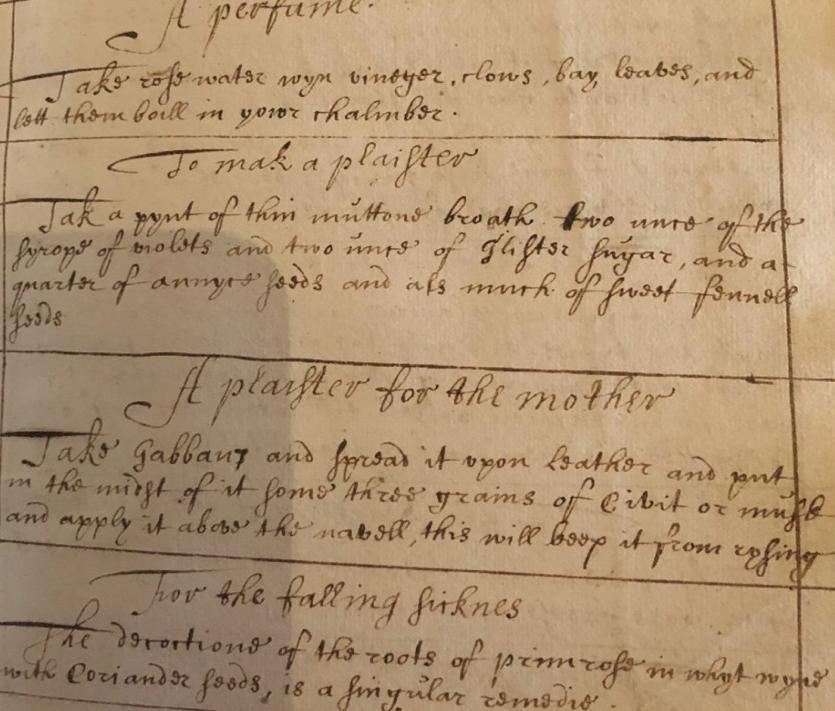 A perfume.
Take rose water wyn vineger, clows, bay leaves, and
lett them boill in yowr chalmber.
To mak a plaister
Tak a pynt of thin muttone broath two unce of the
syrope of violets and two unce of Glister sugar, and a
quarter of annyce seeds and als much of sweet fennell
seeds
A plaister for the mother
Take Gabbanz and spread it upon leather and put
in the midst of it some three grains of Civit or musk
and apply it above the navell, this will keep it from rysing
For the falling sicknes
The decoctione of the roots of primrose in whyt wyne
with Coriander seeds, is a singular remedie.